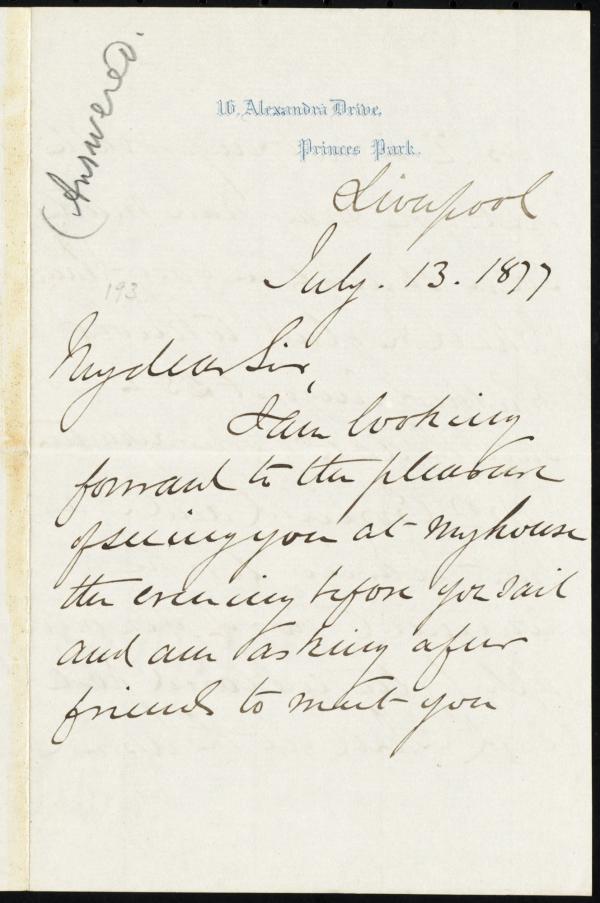 (Answered.
16, Alexandra Drive,
Princes Park.
Liverpool
July. 13. 1877
193
My dear Sir,
I am looking
forward to the pleasure
of seeing you at my house
the evening before you sail
and am asking a few
friends to meet you